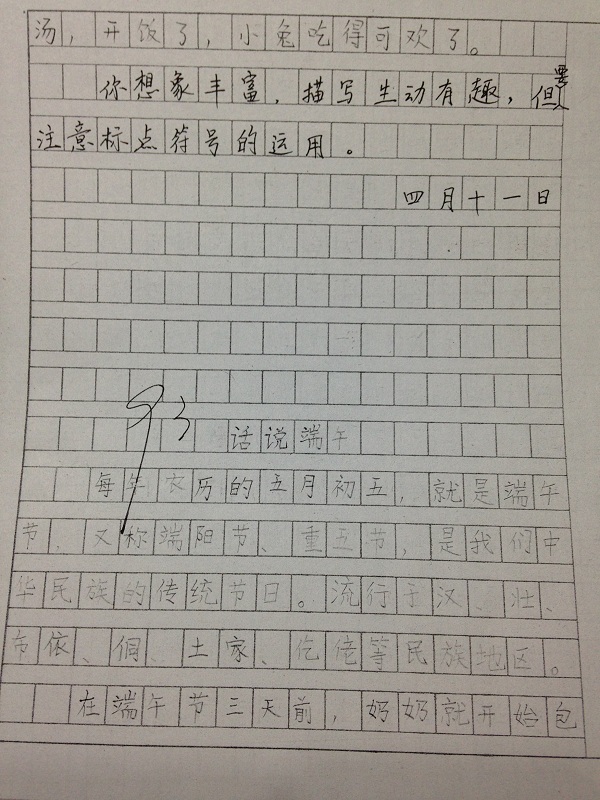 汤，开饭了，小兔吃得可欢了。
你想象丰富，描写生动有趣，但要
注意标点符号的运用。
四月十一日
93
话说端午
每年农历的五月初五，就是端午
节，又称端阳节、重五节，是我们中
华民族的传统节日。流行于汉、壮、
布依、侗、土家、仡佬等民族地区。
在端午节三天前，奶奶就开始包